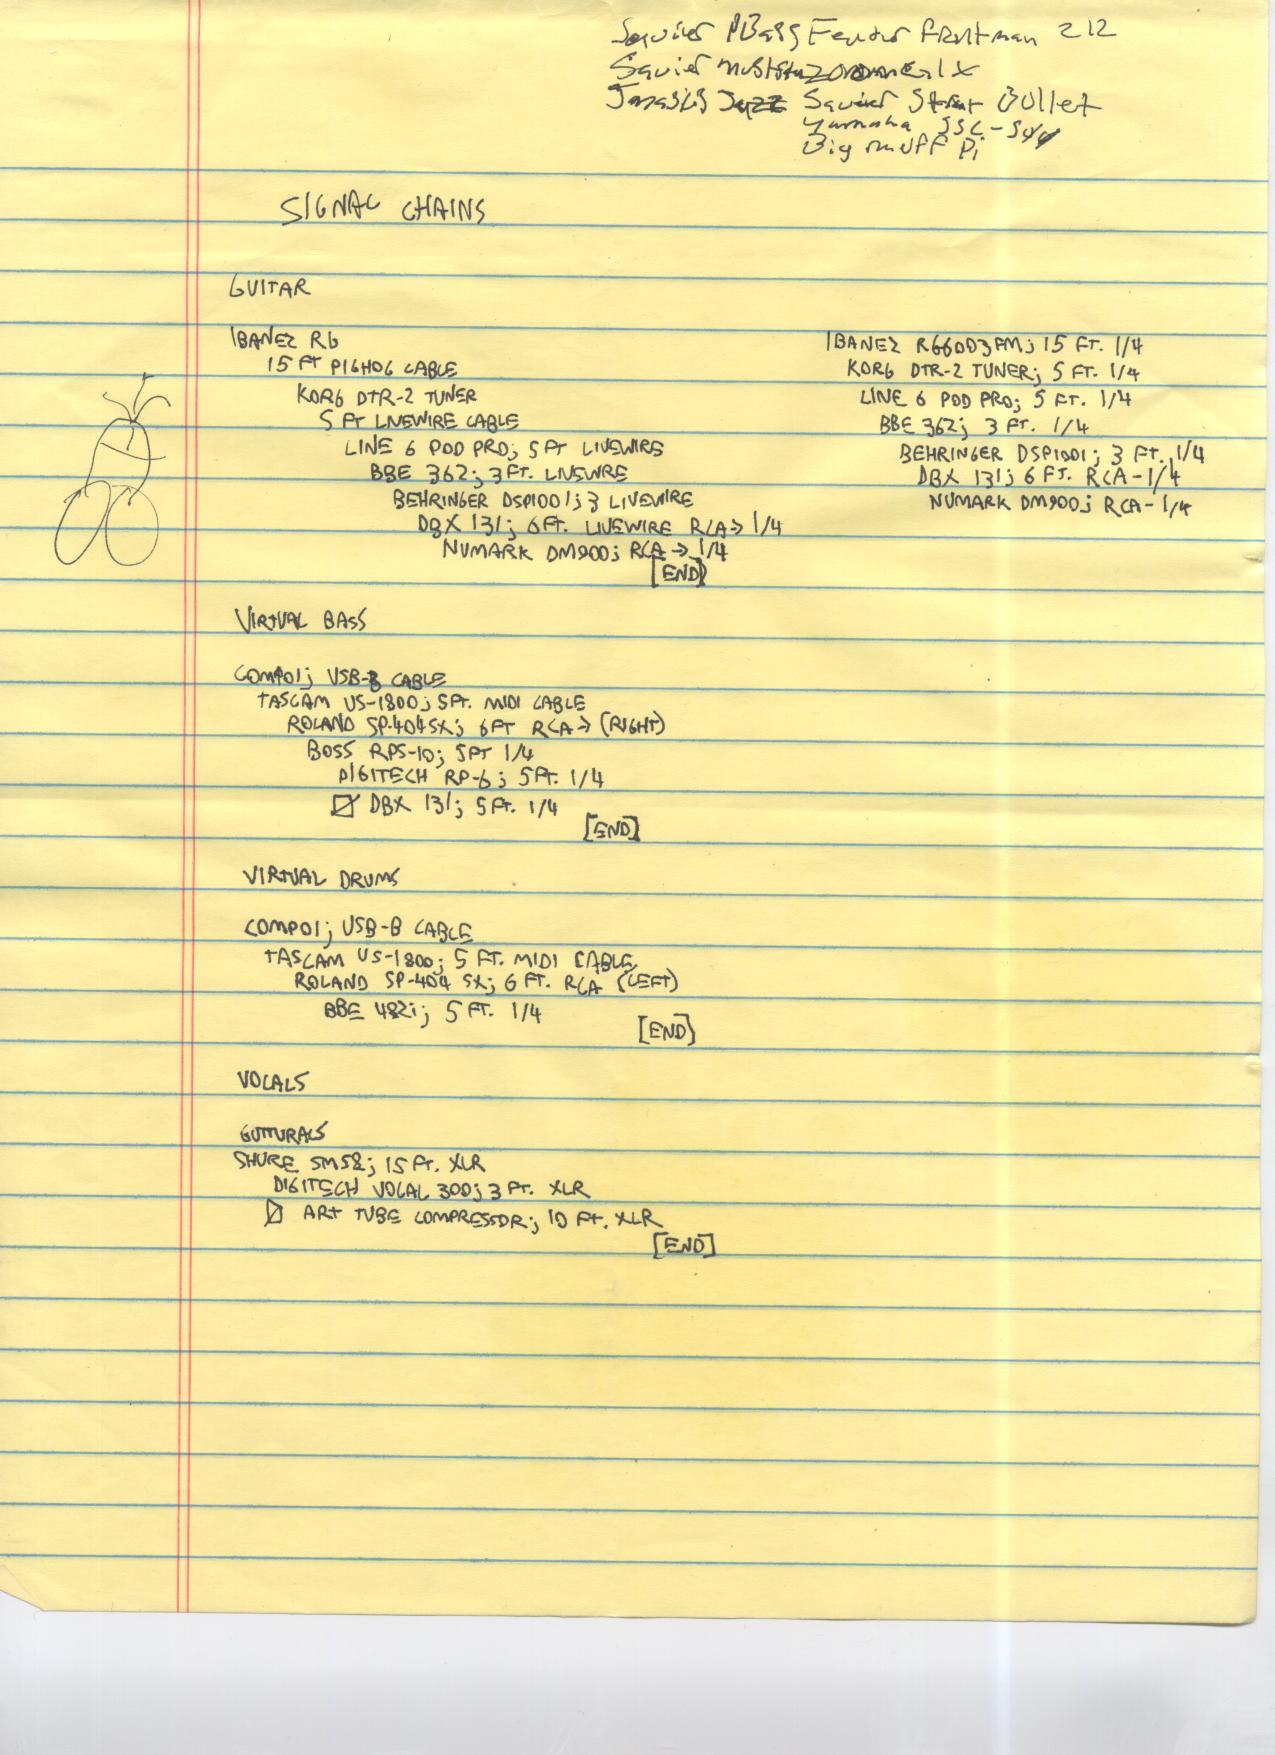 Squier PBass Fender Frontman 212
Squier
Jazz Squier Strat Bullet
Yamaha
Big muff Pi
SIGNAL CHAINS
GUITAR
IBANEZ RG
15 FT PIGHOG CABLE
KORG DTR-2 TUNER
5 FT LIVEWIRE CABLE
LINE 6 POD PRO; 5 FT LIVEWIRE
BBE 362; 3 FT. LIVEWIRE
BEHRINGER DSP1001; 3 LIVEWIRE
DBX 131; 6 FT. LIVEWIRE RCA → 1/4
NUMARK DM900; RCA → 1/4
[END]
IBANEZ RG60D3FM; 15 FT. 1/4
KORG DTR-2 TUNER; 5 FT. 1/4
LINE 6 POD PRO; 5 FT. 1/4
BBE 362; 3 FT. 1/4
BEHRINGER DSP1001; 3 FT. 1/4
DBX 131; 6 FT. RCA-1/4
NUMARK DM900; RCA-1/4
VIRTUAL BASS
COMP01; USB-B CABLE
TASCAM US-1800; 5 FT. MIDI CABLE
ROLAND SP-404SX; 6 FT RCA → (RIGHT)
BOSS RPS-10; 5 FT 1/4
DIGITECH RP-6; 5 FT. 1/4
DBX 131; 5 FT. 1/4
[END]
VIRTUAL DRUMS
COMP01; USB-B CABLE
TASCAM US-1800; 5 FT. MIDI CABLE
ROLAND SP-404 SX; 6 FT. RCA (LEFT)
BBE 482i; 5 FT. 1/4
[END]
VOCALS
GUTTURALS
SHURE SM58; 15 FT. XLR
DIGITECH VOCAL 300; 3 FT. XLR
ART TUBE COMPRESSOR; 10 FT. XLR
[END]